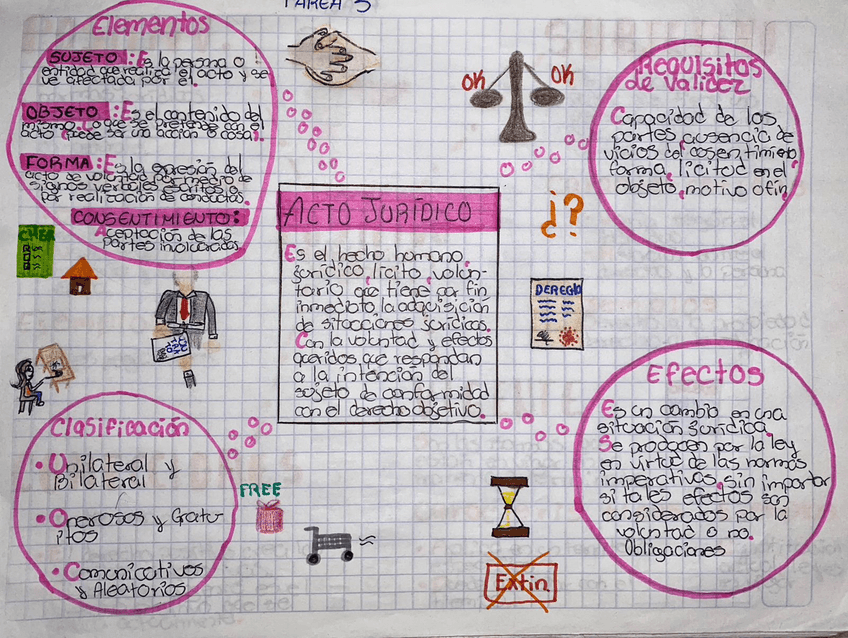 TAREA 3
Elementos
SUJETO: Es la persona o
entidad que realiza el acto y se
ve afectada por él.
OBJETO: Es el contenido del
mismo. Lo que se pretende con el
acto, puede ser una acción o cosa.
FORMA: Es la expresión del
acto de voluntad por medio de
signos verbales, escritos o
por realización de conductas.
CONSENTIMIENTO:
Aceptación de las
partes involucradas
OK OK
Requisitos
de validez
Capacidad de las
partes, ausencia de
vicios del cosentimiento
forma, licitud en el
objeto, motivo o fin
ACTO JURÍDICO
Es el hecho humano,
jurídico, lícito, volun-
tario que tiene por fin
inmediato, la adquisición
de situaciones jurídicas.
Con la voluntad y efectos
queridos que respondan
a la intención del
sujeto de conformidad
con el derecho objetivo.
¿?
DERECHO
Clasificación
• Unilateral y
Bilateral
• Onerosos y Gratu-
itos
• Comunicativos
y Aleatorios
FREE
Efectos
Es un cambio en una
situación jurídica
Se producen por la ley
en virtud de las normas
imperativas, sin importar
si tales efectos son
considerados por la
voluntad o no.
Obligaciones
Extin